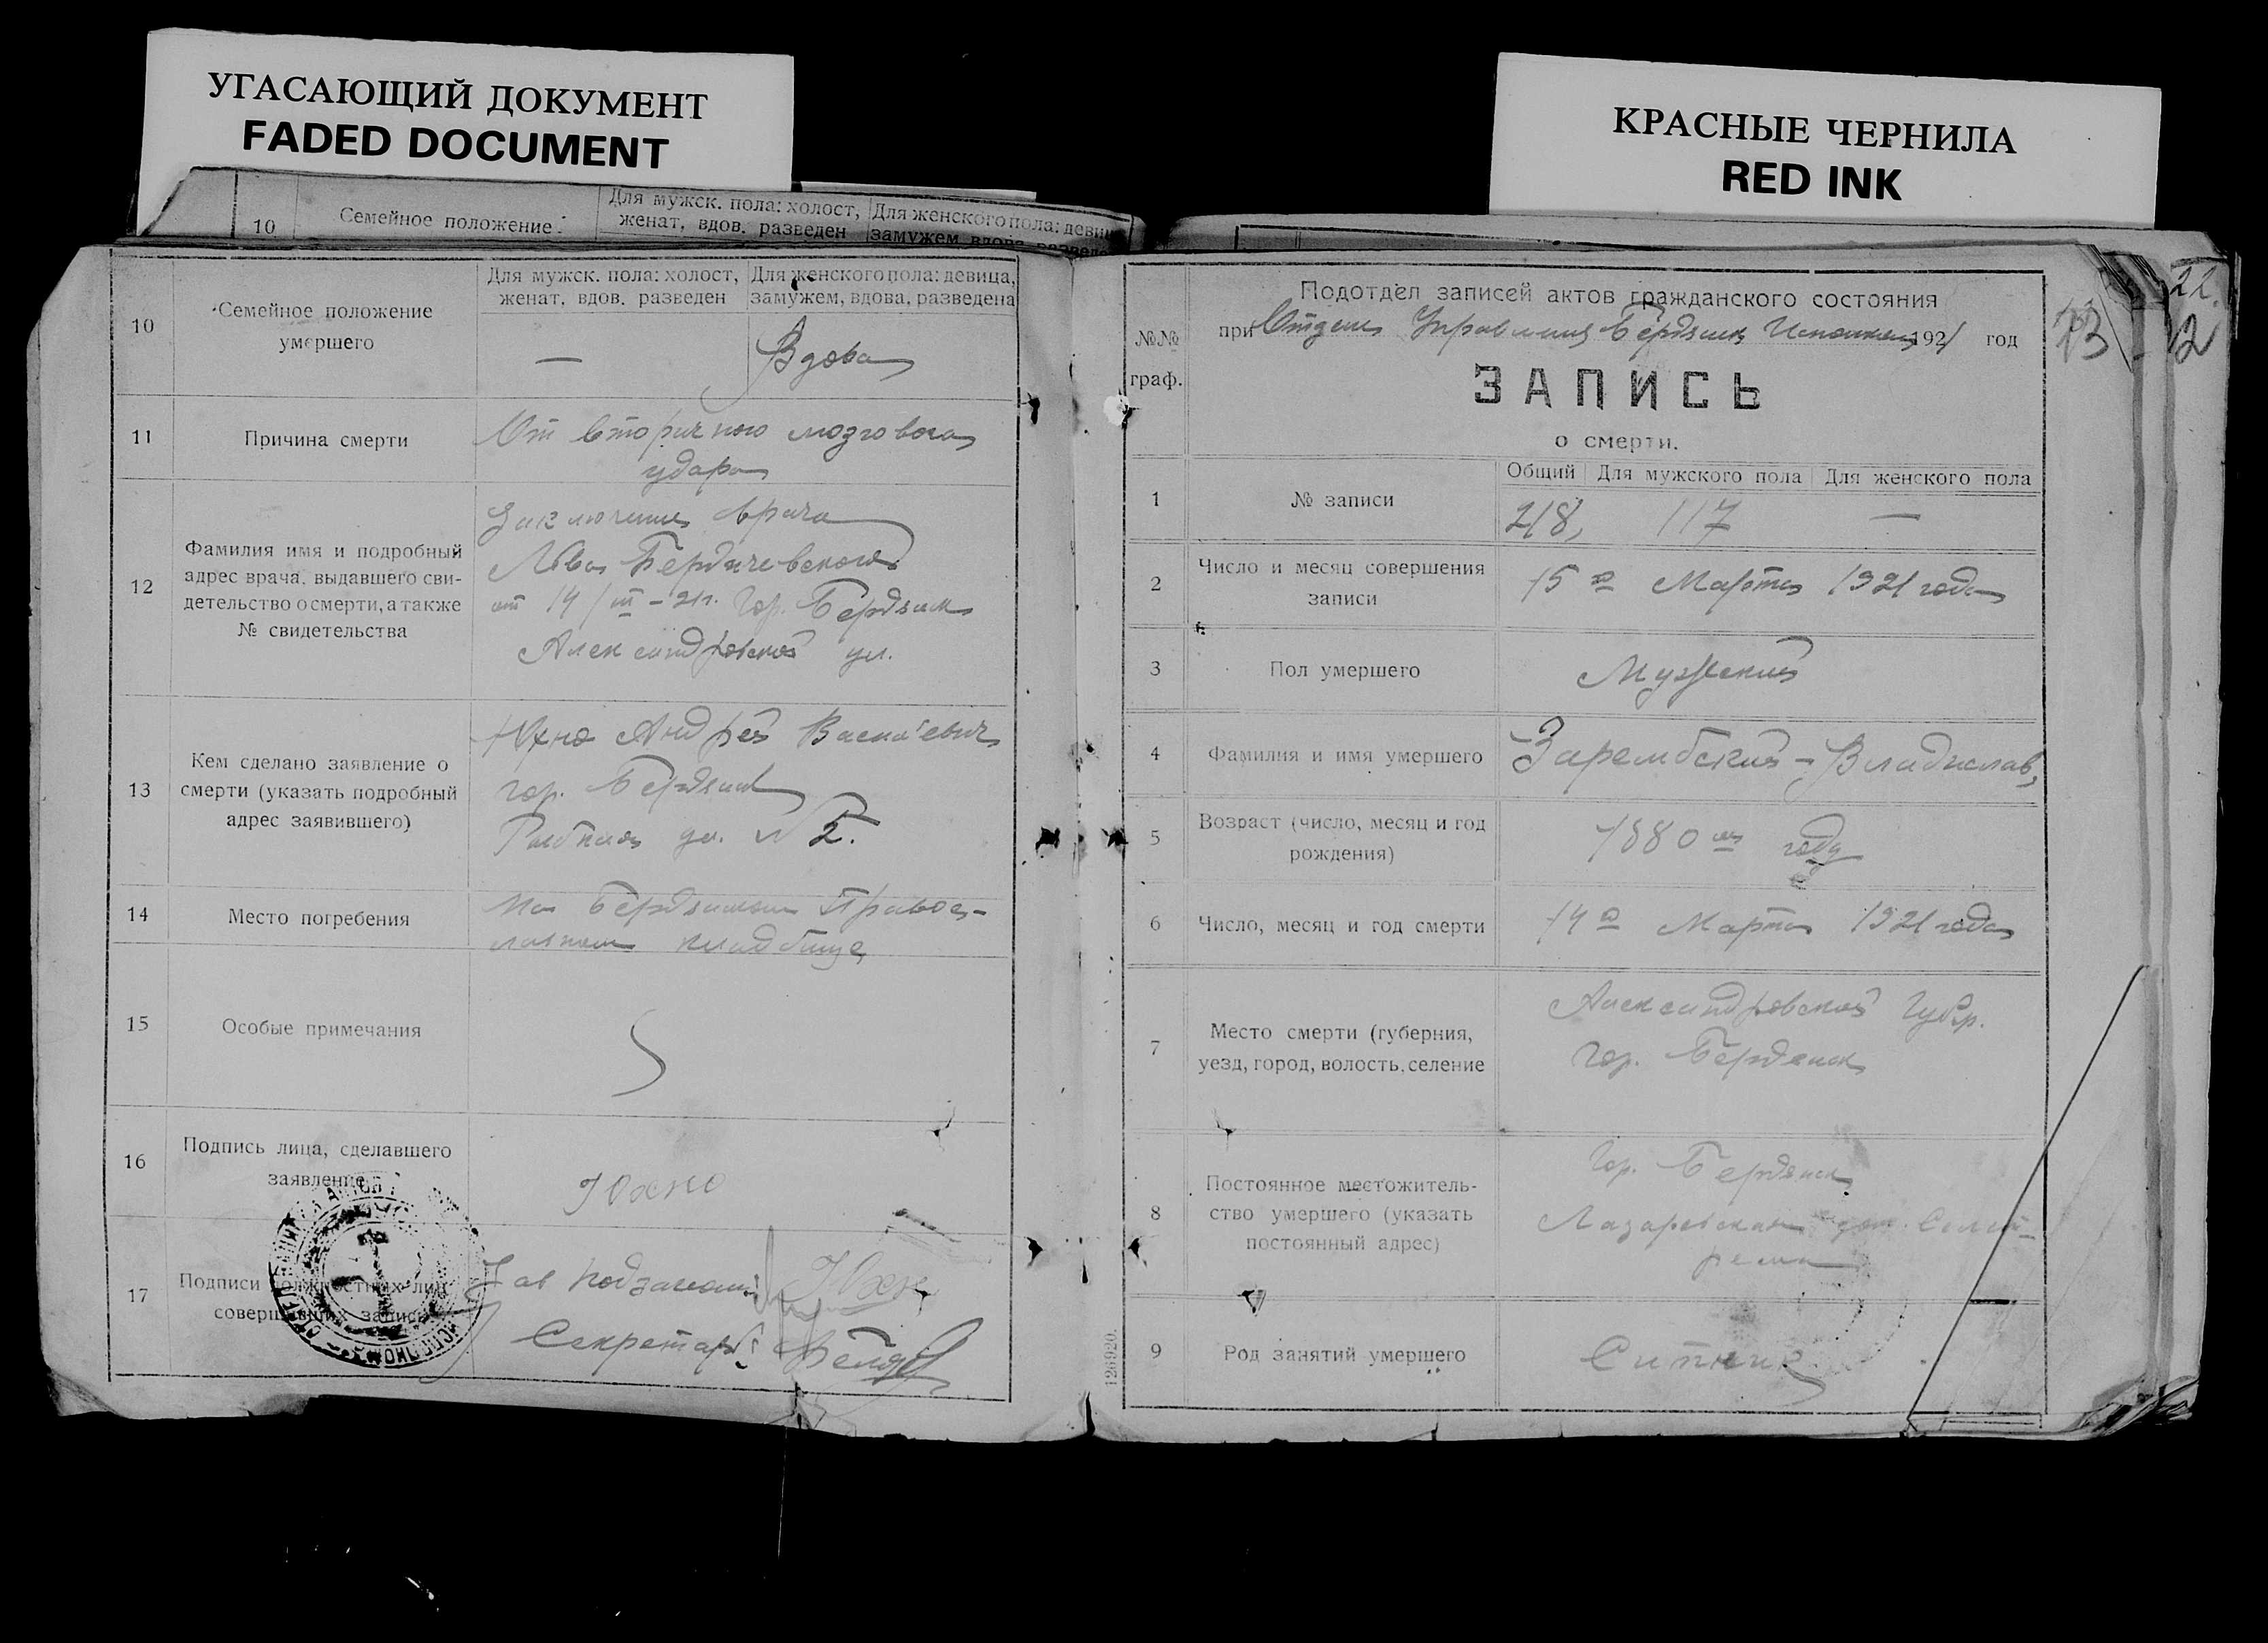 УГАСАЮЩИЙ ДОКУМЕНТ
FADED DOCUMENT
КРАСНЫЕ ЧЕРНИЛА
RED INK
10
Семейное положение
Для мужск. пола: холост,
женат, вдов. разведен
Для женского пола: девиц
замужем, вдова, разведе
10
Семейное положение
умершего
Для мужск. пола: холост,
женат, вдов. разведен
—
Для женского пола: девица,
замужем, вдова, разведена
Вдова
11
Причина смерти
От вторичного мозгового
удара
12
Фамилия имя и подробный
адрес врача, выдавшего сви-
детельство о смерти, а также
№ свидетельства
Заключение врача
Льва Бердичевского
от 14/III-21г. гор. Бердянск
Александровской ул.
13
Кем сделано заявление о
смерти (указать подробный
адрес заявившего)
Юхно Андрей Васильевич
гор. Бердянск
ул. № 2.
14
Место погребения
На Бердянском Правос-
лавном кладбище
15
Особые примечания
16
Подпись лица, сделавшего
заявление
Юхно
17
Подписи должностных лиц
совершивших запись
Зав Подзагсом
Секретарь
22.
№№
граф.
Подотдел записей актов гражданского состояния
при Отделе Управления Бердянск Исполкома 1921 год
ЗАПИСЬ
о смерти.
1
№ записи
Общий
Для мужского пола
Для женского пола
218,
117
—
2
Число и месяц совершения
записи
15го Марта 1921 года
3
Пол умершего
Мужский
4
Фамилия и имя умершего
Зарембский - Владислав,
5
Возраст (число, месяц и год
рождения)
1880м году
6
Число, месяц и год смерти
14го Марта 1921 года
7
Место смерти (губерния,
уезд, город, волость, селение
Александровской Губер.
гор. Бердянск
8
Постоянное местожитель-
ство умершего (указать
постоянный адрес)
Гор. Бердянск
Лазаревская
9
Род занятий умершего
Ситник
126920.